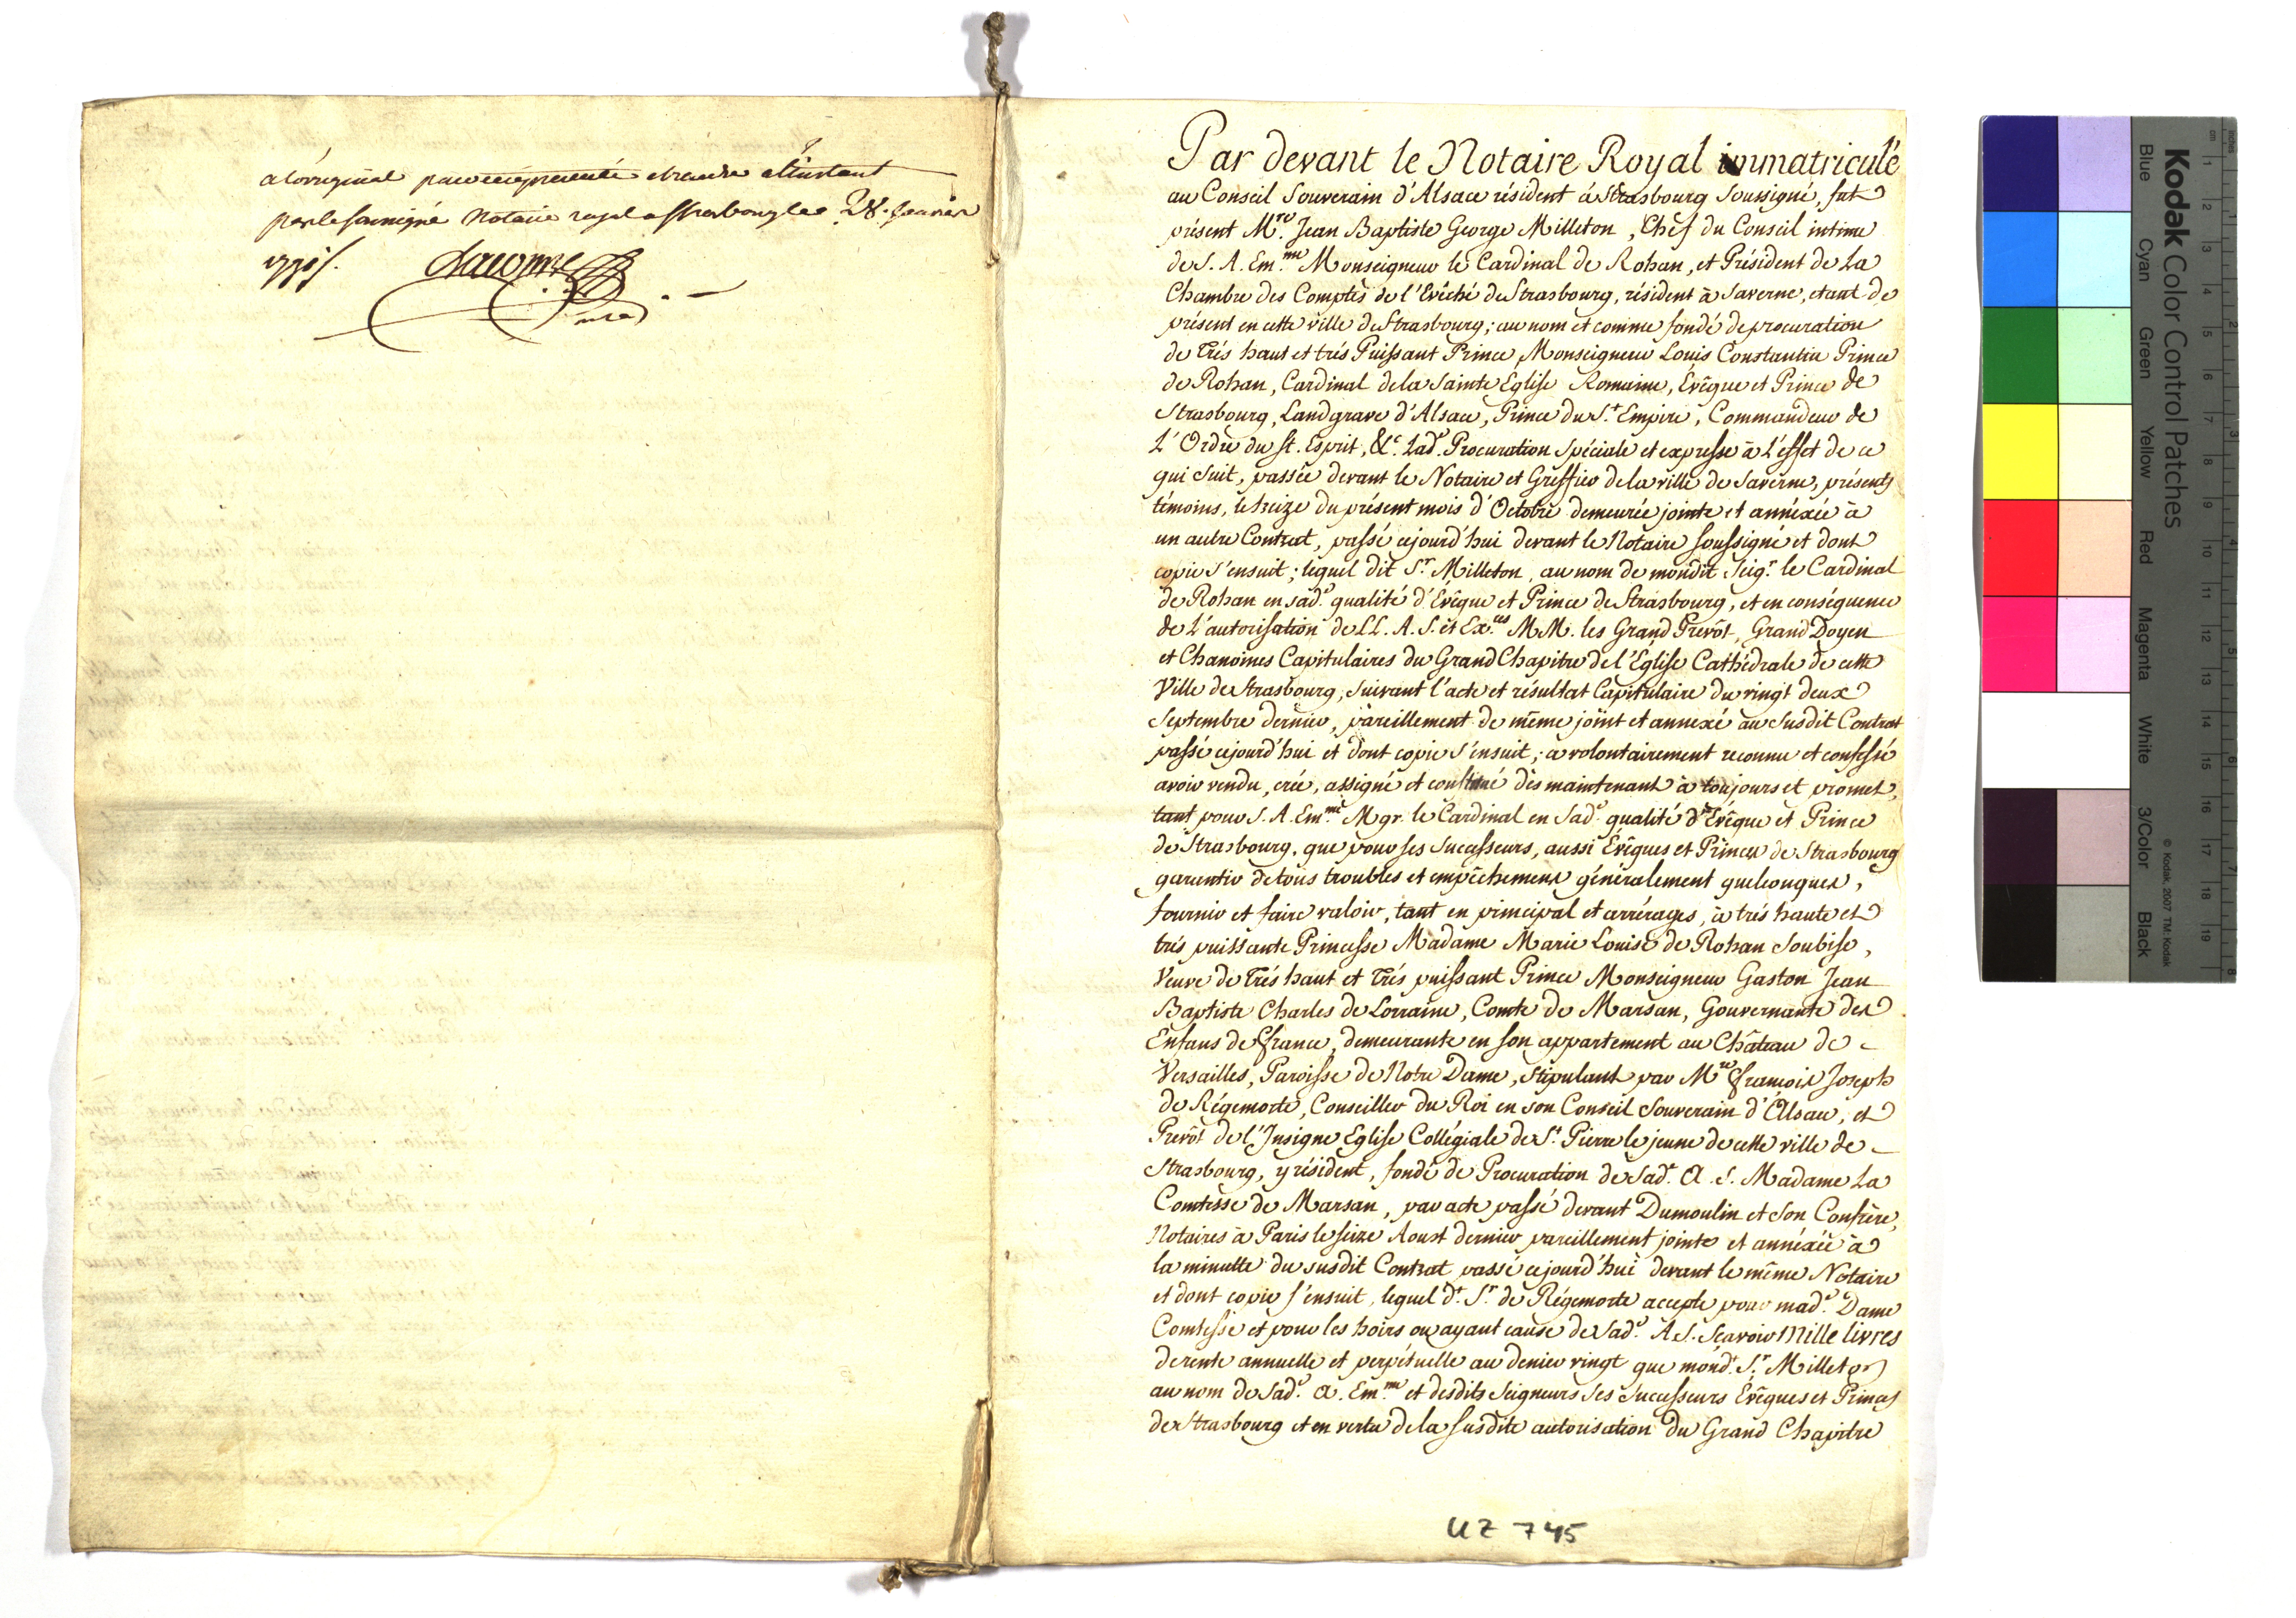 a l'original par moy presenté et rendu a l'instant
par le soussigné Notaire royal a Strasbourg le 28. Janvier
Lacombe
Par devant le Notaire Royal immatriculé
au Conseil Souverain d'Alsace résident à Strasbourg Soussigné, fut
présent M.re Jean Baptiste George Milleton, Chef du Conseil intime
de S. A. Em.me Monseigneur le Cardinal de Rohan, et Président de La
Chambre des Comptes de l'Evêché de Strasbourg, résident à Saverne, etant de
présent en cette ville de Strasbourg; au nom et comme fondé de procuration
de Trés haut et trés Puissant Prince Monseigneur Louis Constantin Prince
de Rohan, Cardinal de la Sainte Eglise Romaine, Évêque et Prince de
Strasbourg, Landgrave d'Alsace, Prince du S.t Empire, Commandeur de
L'Ordre du St. Esprit, &c. Lad.e Procuration Spéciale et expresse à L'effet de ce
qui suit, passée devant le Notaire et Greffier de la ville de Saverne, présents
témoins, le treize du présent mois d'Octobre demeurée jointe et annéxée à
un autre Contrat, passé cejourd'hui devant le Notaire soussigné et dont
copie s'ensuit; lequel dit S.r Milleton, au nom de mondit Seig.r le Cardinal
de Rohan en sad.e qualité d'Evêque et Prince de Strasbourg, et en conséquence
de L'autorisation de LL. A. S. et Ex.ces MM. les Grand Prevôt, Grand Doyen
et Chanoines Capitulaires du Grand Chapitre de l'Eglise Cathédrale de cette
Ville de Strasbourg, suivant l'acte et résultat Capitulaire du vingt deux
Septembre dernier, pareillement de même joint et annexé au susdit Contrat
passé cejourd'hui et dont copie s'ensuit; a volontairement reconnu et confessé
avoir vendu, créé, assigné et constitué dès maintenant à toujours et promet,
tant pour S. A. Em.me Mgr. le Cardinal en Sad.e qualité d'Evêque et Prince
de Strasbourg, que pour ses Successeurs, aussi Évêques et Princes de Strasbourg
garantir de tous troubles et empêchemens généralement quelconques,
fournir et faire valoir, tant en principal et arrérages, à trés haute et
trés puissante Princesse Madame Marie Louise de Rohan Soubise,
Veuve de Trés haut et Trés puissant Prince Monseigneur Gaston Jean
Baptiste Charles de Lorraine, Comte de Marsan, Gouvernante des
Enfans de france, demeurante en son appartement au Château de
Versailles, Paroisse de Notre Dame, stipulant par M.re françois Joseph
de Régemorte, Conseiller du Roi en son Conseil Souverain d'Alsace, et
Prevôt de l'Insigne Eglise Collégiale de S.t Pierre le jeune de cette ville de
Strasbourg, y résident, fondé de Procuration de Sad.e A. S. Madame La
Comtesse de Marsan, par acte passé devant Dumoulin et Son Confrère,
Notaires à Paris le seize Aoust dernier pareillement jointe et annéxée à
la minutte du susdit Contrat passé cejourd'hui devant le même Notaire
et dont copie s'ensuit, lequel d.t S.r de Régemorte accepte pour mad.e Dame
Comtesse et pour les hoirs ou ayant cause de Sad.e A. S. Scavoir Mille livres
de rente annuelle et perpétuelle au denier vingt que mond.t S.r Milleton
au nom de Sad.e A. Em.me et desdits Seigneurs Ses Successeurs Évêques et Princes
de Strasbourg et en vertu de la susdite autorisation du Grand Chapitre
UZ 745
Kodak Color Control Patches
© Kodak, 2007 TM: Kodak
Blue Cyan Green Yellow Red Magenta White 3/Color Black
cm 1 2 3 4 5 6 7 8 9 10 11 12 13 14 15 16 17 18 19
inches 1 2 3 4 5 6 7 8